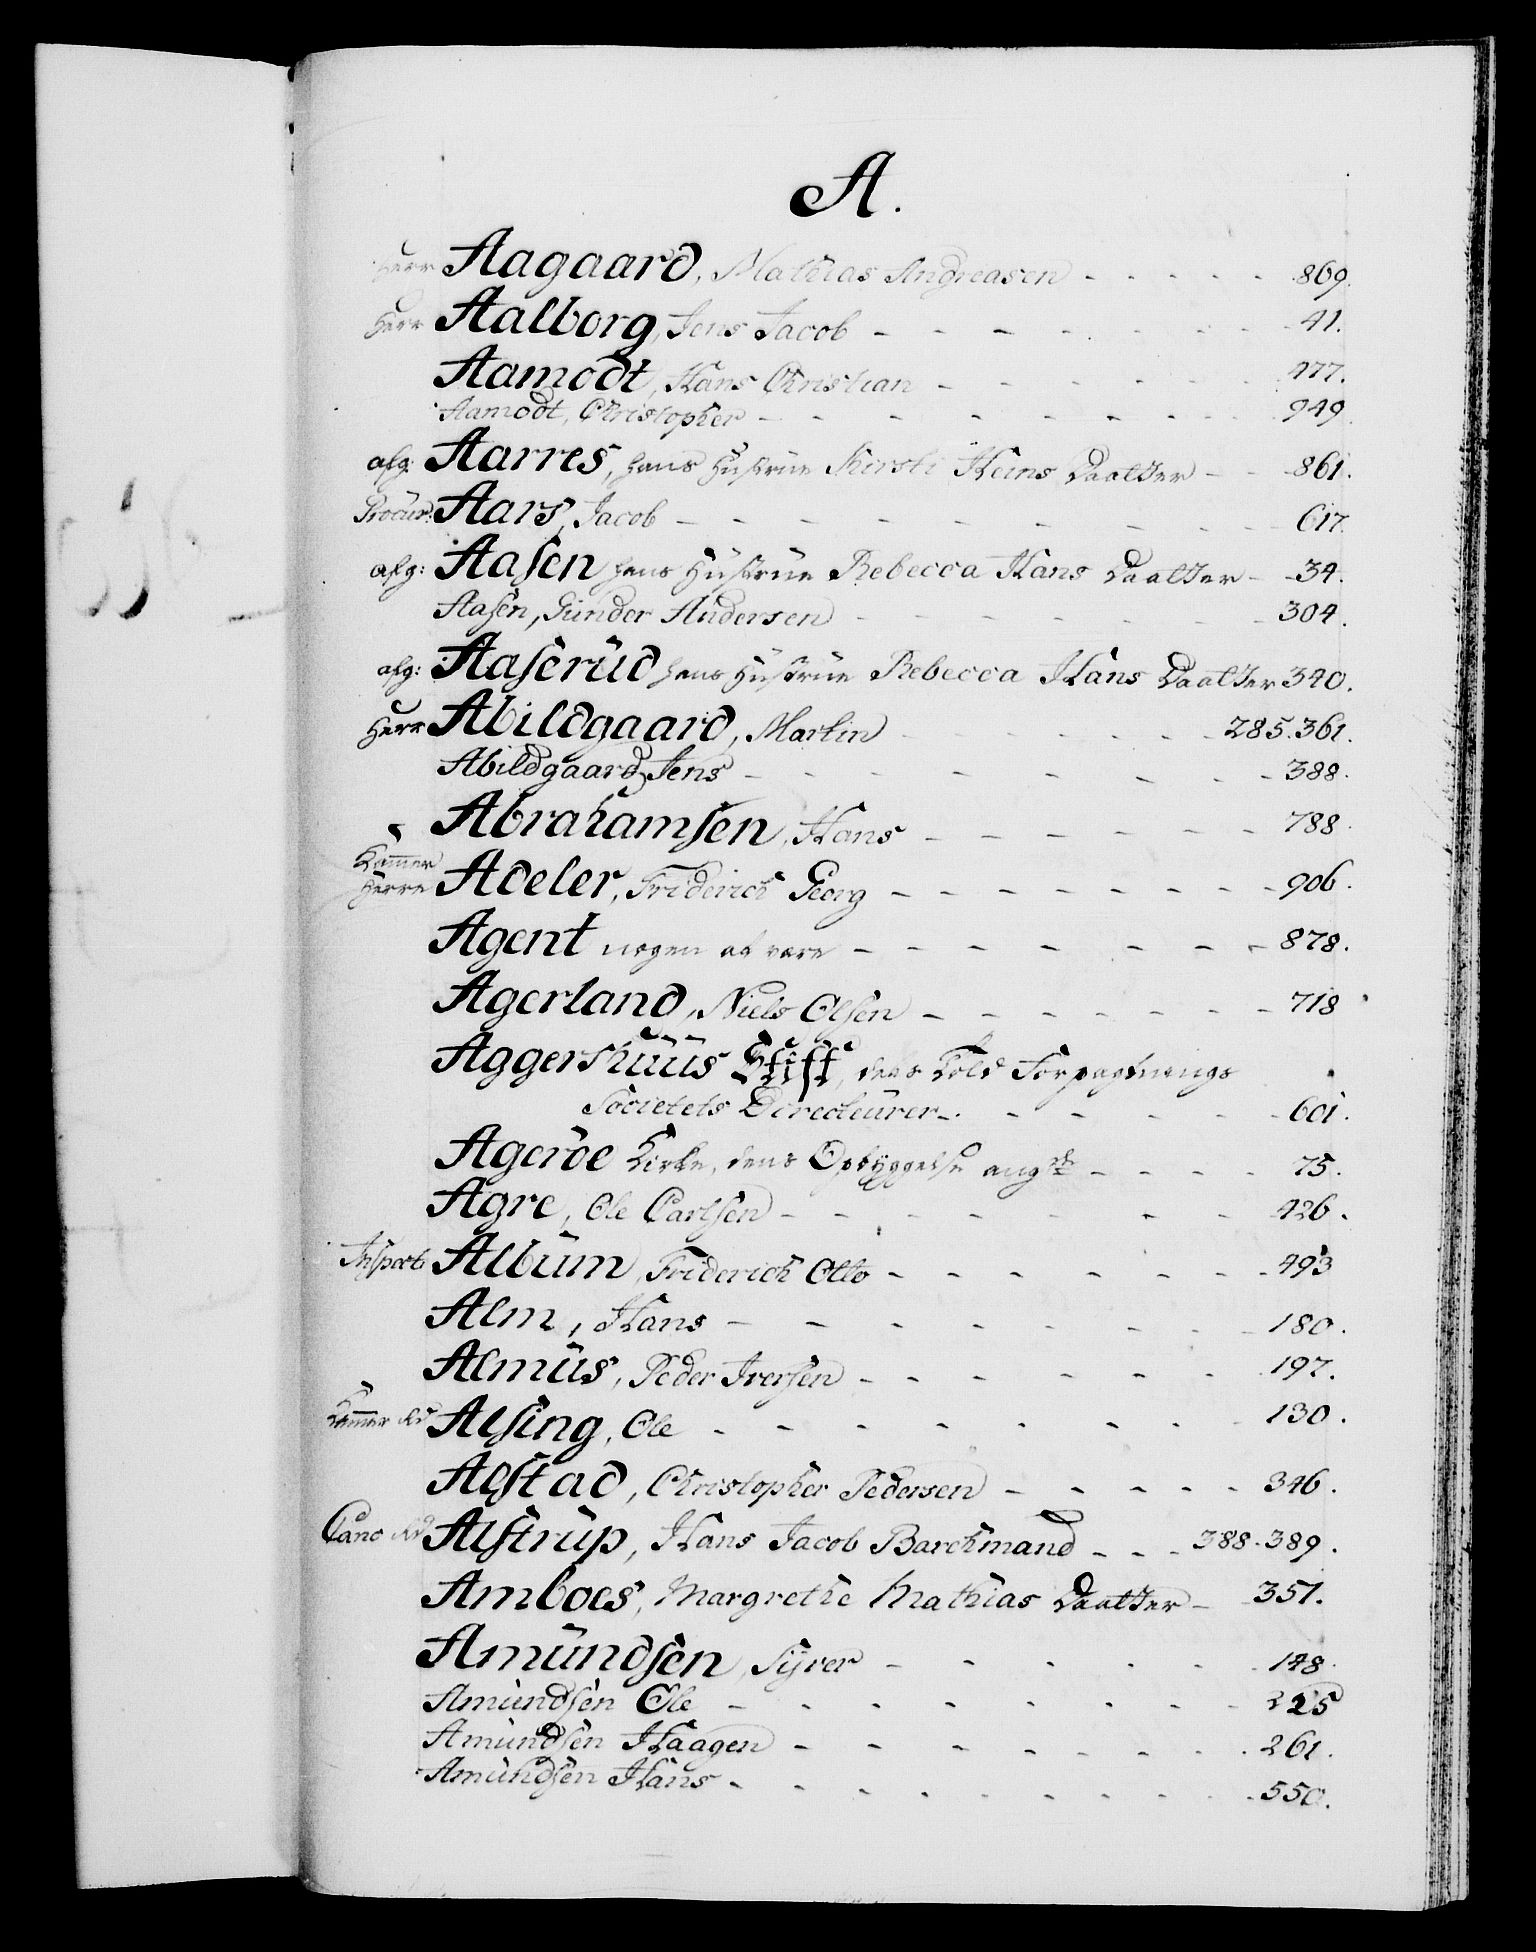 A.
Herr Aagaard, Mathias Andreasen - - - - - 869.
Herr Aalborg, Jens Jacob - - - - - - - - 41.
Aamodt, Hans Christian - - - - - - 477.
Aamodt, Christopher - - - - - - - 949.
afg: Aarres, hans Hustrue Kirsti Heins Daatter - - 861.
Procur: Aars, Jacob - - - - - - - - 617.
afg: Aasen hans Hustrue Rebecca Hans Daatter - - 34.
Aasen, Gunder Andersen - - - - - - 304.
afg: Aaserud hans Hustrue Rebecca Hans Daatter 340.
Herr Abildgaard, Martin - - - - - 285. 361.
Abildgaard, Jens - - - - - - - - 388.
Abrahamsen, Hans - - - - - - 788.
Kammer
Herre Adeler, Friderich Georg - - - - - - - - 906.
Agent nogen at være - - - - - - - 878.
Agerland, Niels Olsen - - - - - - - 718
Aggershuus Stift, dets Told Forpagtnings
Societets Directeurer - . - - - - - - 601.
Ageröe Kirke, dens Opbyggelse ang: - - - - 75.
Agre, Ole Carlsen - - - - - - - 426.
Inspect: Album, Friderich Otto - - - - - - - 493
Alm, Hans - - - - - - - - 180.
Almus, Peder Iversen - - - - - - 197.
Kammer Rd Alsing, Ole - - - - - - - - 130.
Alstad, Christopher Pedersen - - - - - 346.
Canc Rd Alstrup, Hans Jacob Barchmand - - - 388. 389.
Amboes, Margrethe Mathias Daatter - - 351.
Amundsen, Syver - - - - - - 148.
Amundsen Ole - - - - - - - - 225
Amundsen Haagen - - - - - - - - 261.
Amundsen Hans - - - - - - - - - 550.